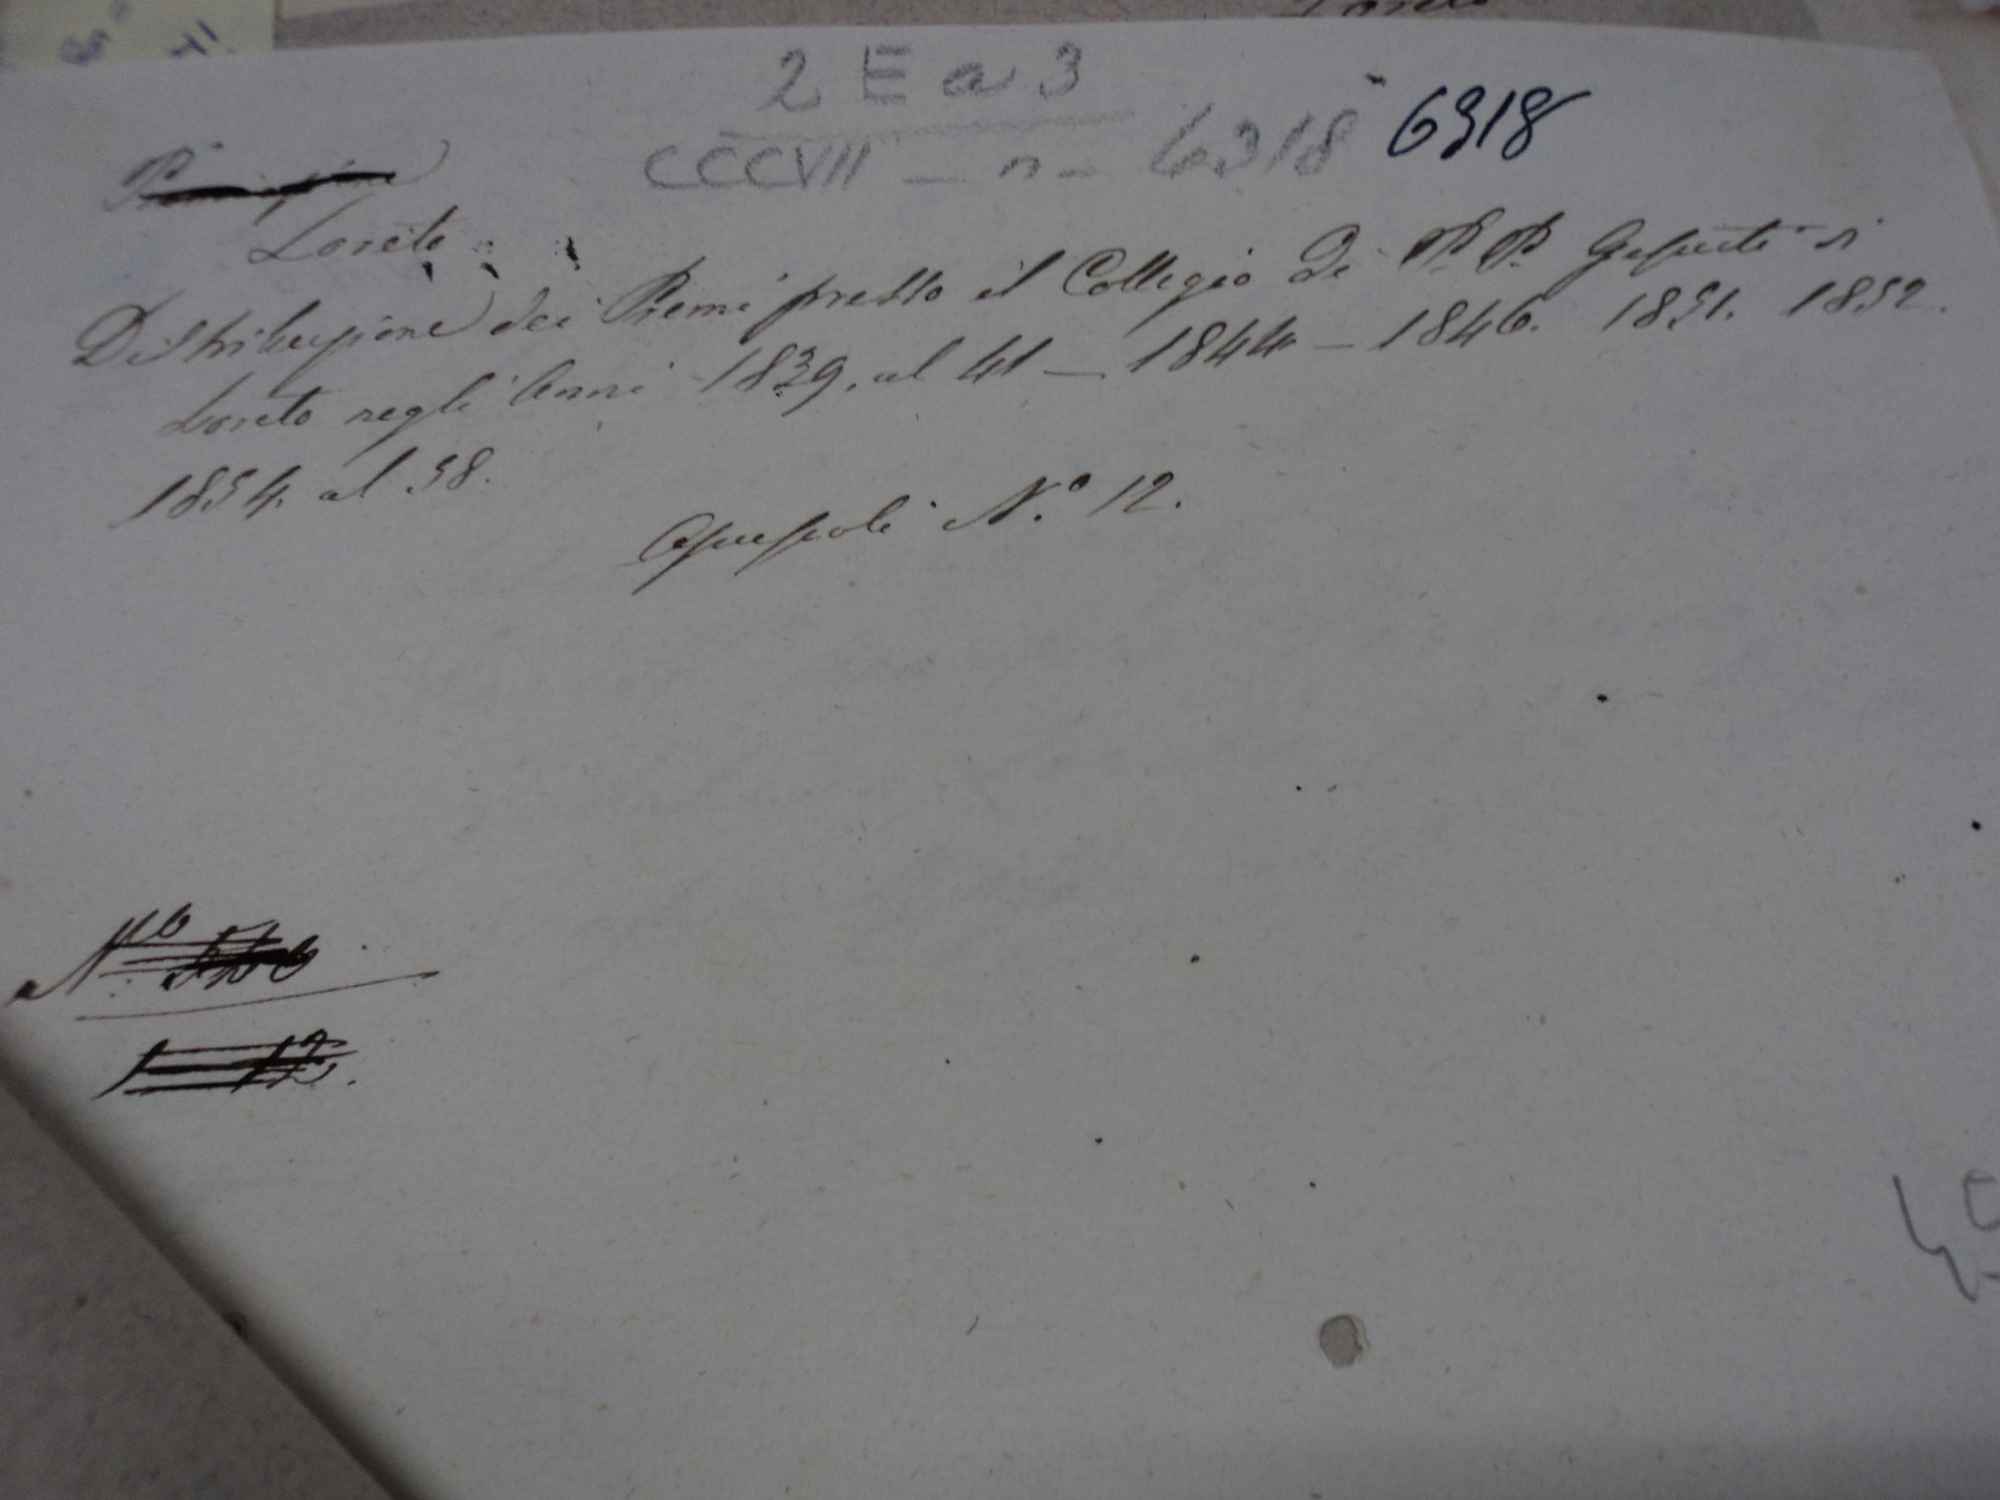 2 E a 3
CCCVII - n - 6318 6318
Loreto
Distribuzione dei Premi presso il Collegio de' P. P. Gesuiti di
Loreto negli Anni 1839. al 41 - 1844 - 1846. 1851. 1852.
1854. al 58.
Opuscoli N.° 12.